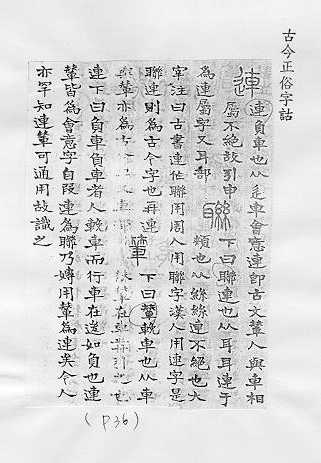 古今正俗字詁
連 連負車也从辵車會意連即古文輦人與車相
屬不絕故引申
為連屬字又耳部
聯 下曰聯連也从耳耳連于
頰也从絲絲連不絕也大
宰注曰古書連作聯周人用聯字漢人用連字是
聯連則為古今字也再連
與輦亦為古今字
輦 下曰輦輓車也从車
㚘在車前引之也
連下曰負車負車者人輓車而行車在後如負也連
輦皆為會意字自叚連為聯乃嫥用輦為連矣今人
亦罕知連輦可通用故識之
(P36)